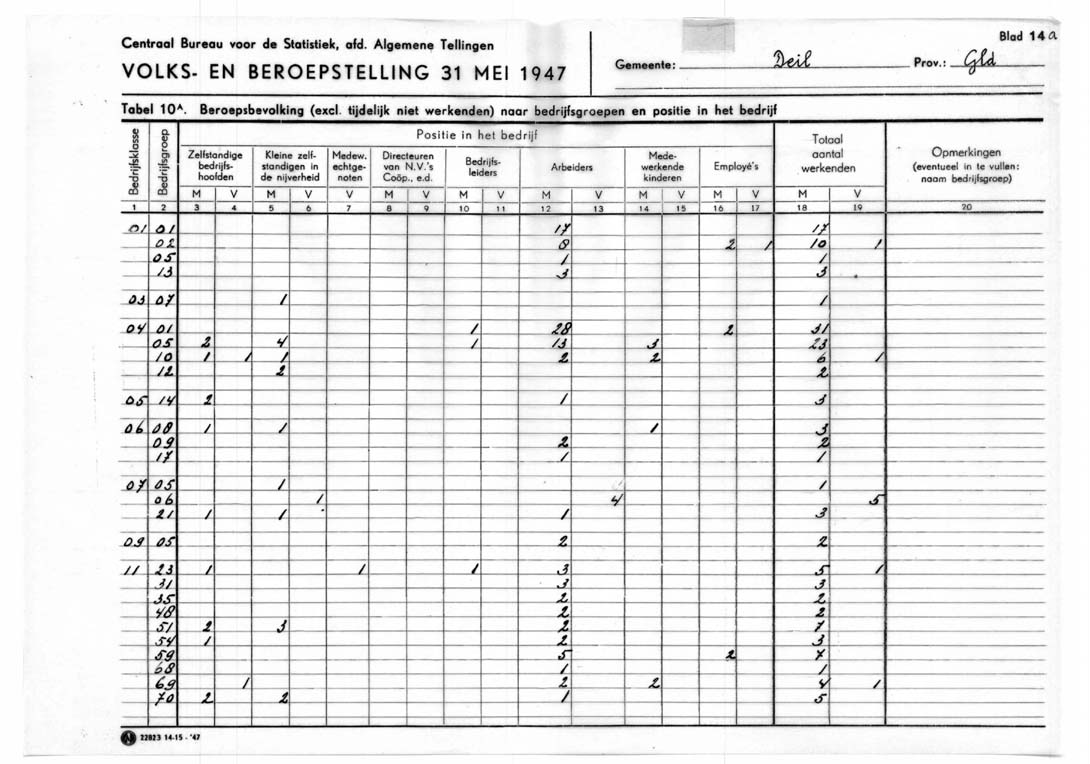 Centraal Bureau voor de Statistiek, afd. Algemene Tellingen
VOLKS- EN BEROEPSTELLING 31 MEI 1947
Blad 14a
Gemeente: Deil Prov.: Gld
Tabel 10A. Beroepsbevolking (excl. tijdelijk niet werkenden) naar bedrijfsgroepen en positie in het bedrijf
Bedrijfsklasse
Bedrijfsgroep
Positie in het bedrijf
Zelfstandige bedrijfs-hoofden
Kleine zelf-standigen in de nijverheid
Medew. echtge-noten
Directeuren van N.V.'s Coöp., e.d.
Bedrijfs-leiders
Arbeiders
Mede-werkende kinderen
Employé's
Totaal aantal werkenden
Opmerkingen (eventueel in te vullen: naam bedrijfsgroep)
M V M V V M V M V M V M V M V M V
1 2 3 4 5 6 7 8 9 10 11 12 13 14 15 16 17 18 19 20
01 01 17 17
02 8 2 1 10 1
05 1 1
13 3 3
03 07 1 1
04 01 1 28 2 31
05 2 4 1 13 3 23
10 1 1 1 2 2 6 1
12 2 2
05 14 2 1 3
06 08 1 1 1 3
09 2 2
17 1 1
07 05 1 1
06 1 4 5
21 1 1 1 3
09 05 2 2
11 23 1 1 1 3 5 1
31 3 3
35 2 2
48 2 2
51 2 3 2 7
54 1 2 3
59 5 2 7
68 1 1
69 1 2 2 4 1
70 2 2 1 5
22823 14-15 - '47